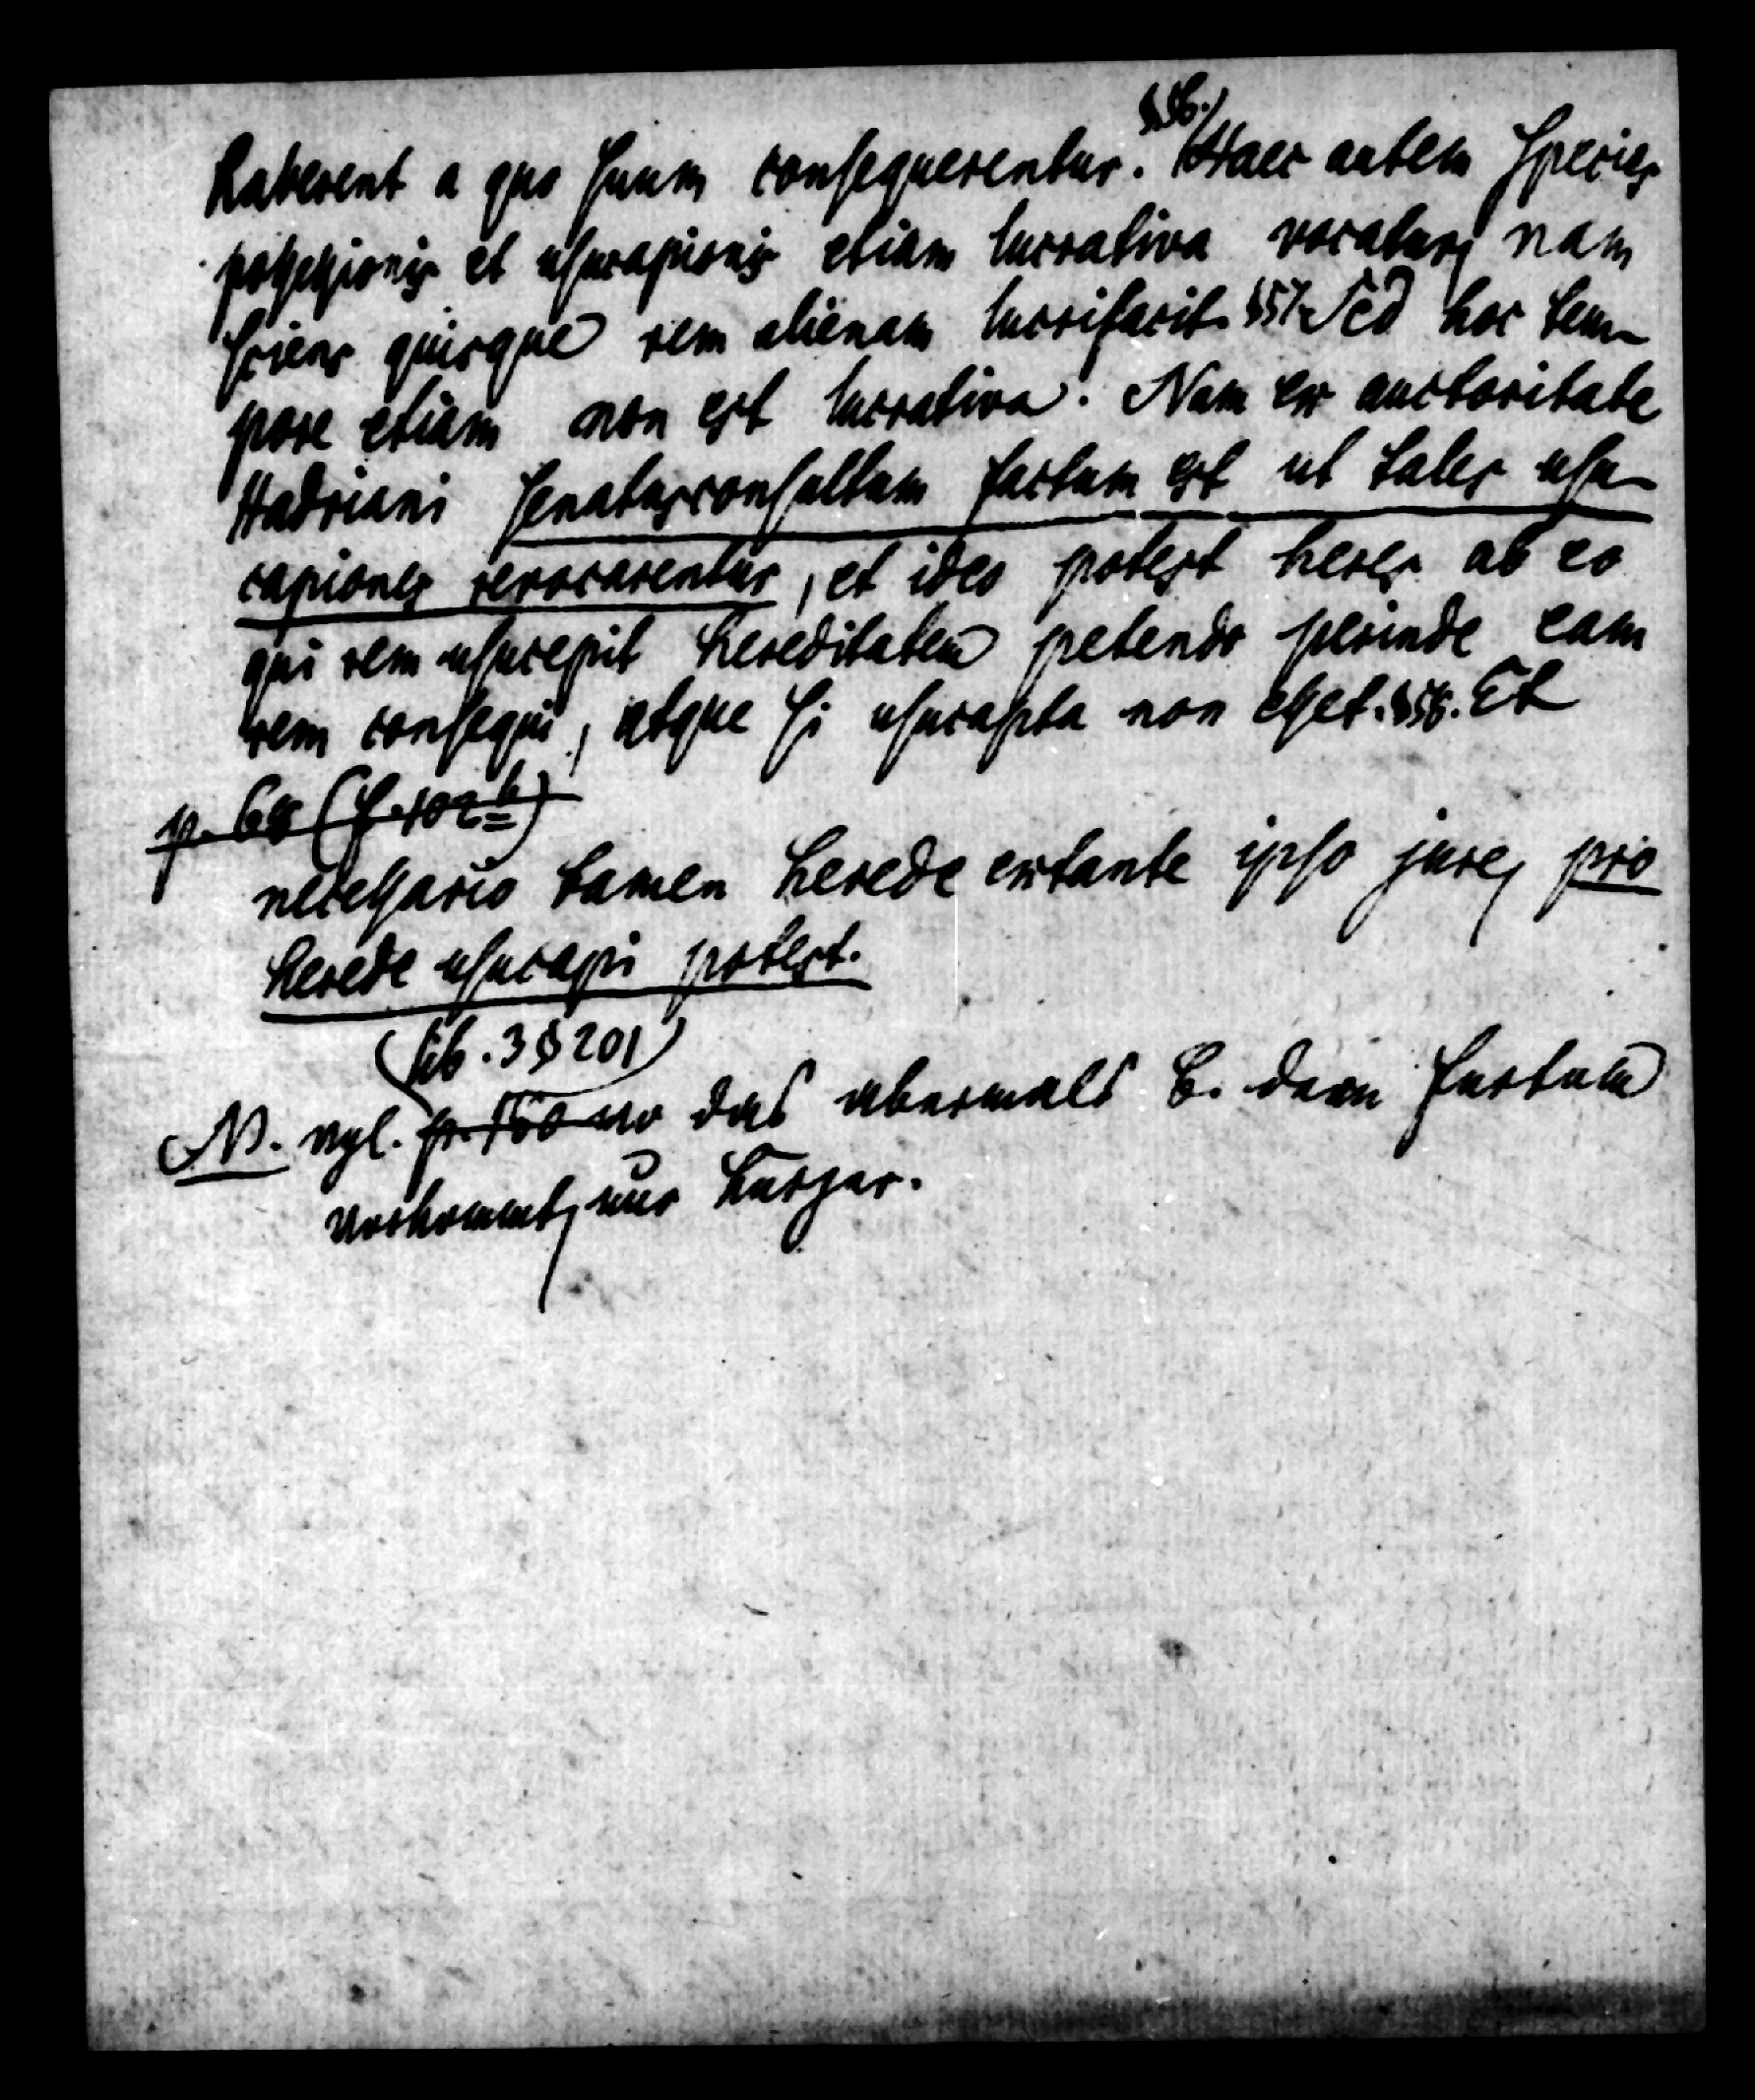 haberent a quo suum consequerentur. §56. Haec autem species
possessionis et usucapionis etiam lucrativa vocatur, nam
sciens quisque rem alienam lucrifacit. §57. Sed hoc tem-
pore etiam non est lucrativa. Nam ex auctoritate
Hadriani senatusconsultum factum est ut tales usu-
capiones revocarentur, et ideo potest heres ab eo
qui rem usucepit hereditatem petendo perinde eam
rem consequi, atque si usucapta non esset. §58. Et
p. 68 (f. 102 b)
necessario tamen herede extante ipso jure, pro
herede usucapi potest.
(lib. 3 § 201)
NB. vgl. p. 160 wo das abermals b. dem furtum
vorkommt, nur kürzer.